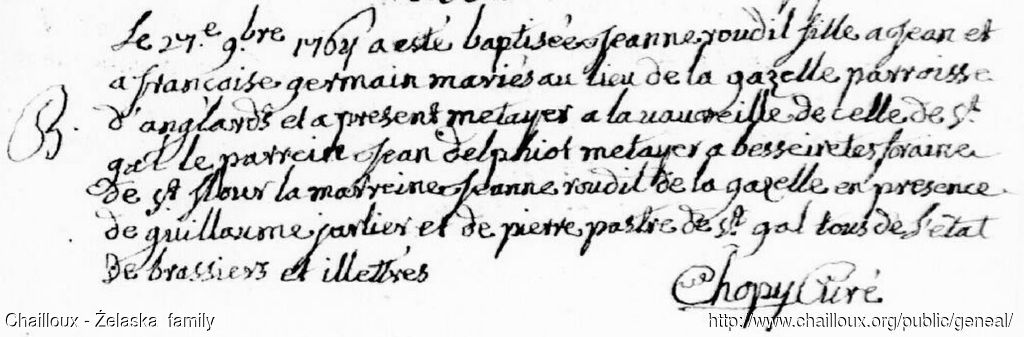 Le 27.e 9.bre 1764 a esté baptisée Jeanne roudil fille a Jean et
a françoise germain mariés au lieu de la gazelle parroisse
B. d'anglards et a present metayer a la vaureille de celle de St
gal le parrein Jean delphiot metayer a besseiretes foraine
de St flour la marreine Jeanne roudil de la gazelle en presence
de guillaume jarlier et de pierre pastre de St gal tous de l'etat
de brassiers et illettrés
Chopy Curé
Chailloux - Żelaska family
http://www.chailloux.org/public/geneal/